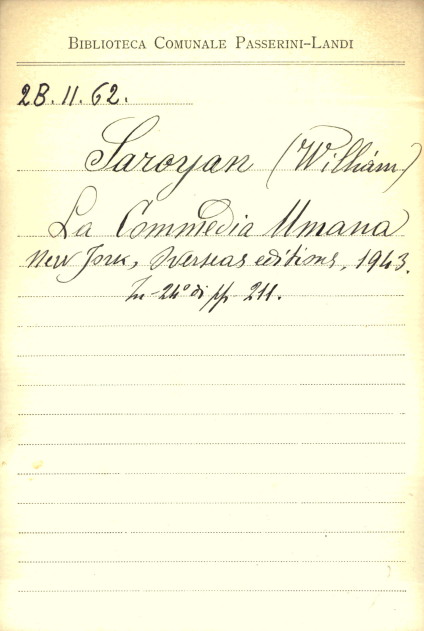 BIBLIOTECA COMUNALE PASSERINI-LANDI
2B.11.62.
Saroyan (William)
La Commedia Umana
New York, Overseas editions, 1943.
In-24° di pp 211.